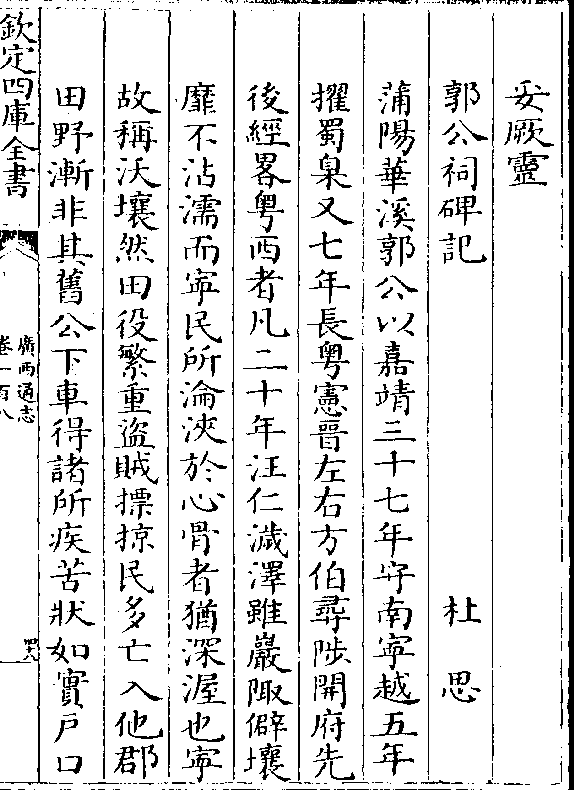 妥厥靈
郭公祠碑記　杜思
蒲陽華溪郭公以嘉靖三十七年守南寧越五年
擢蜀臬又七年長粤憲晉左右方伯尋陟開府先
後經畧粤西者凡二十年汪仁濊澤雖巖陬僻壤
靡不沾濡而寧民所淪浹於心骨者猶深渥也寧
故稱沃壤然田役繁重盜賊摽掠民多亡入他郡
田野漸非其舊公下車得諸所疾苦狀如實戸口
欽定四庫全書
廣西通志
卷一百八